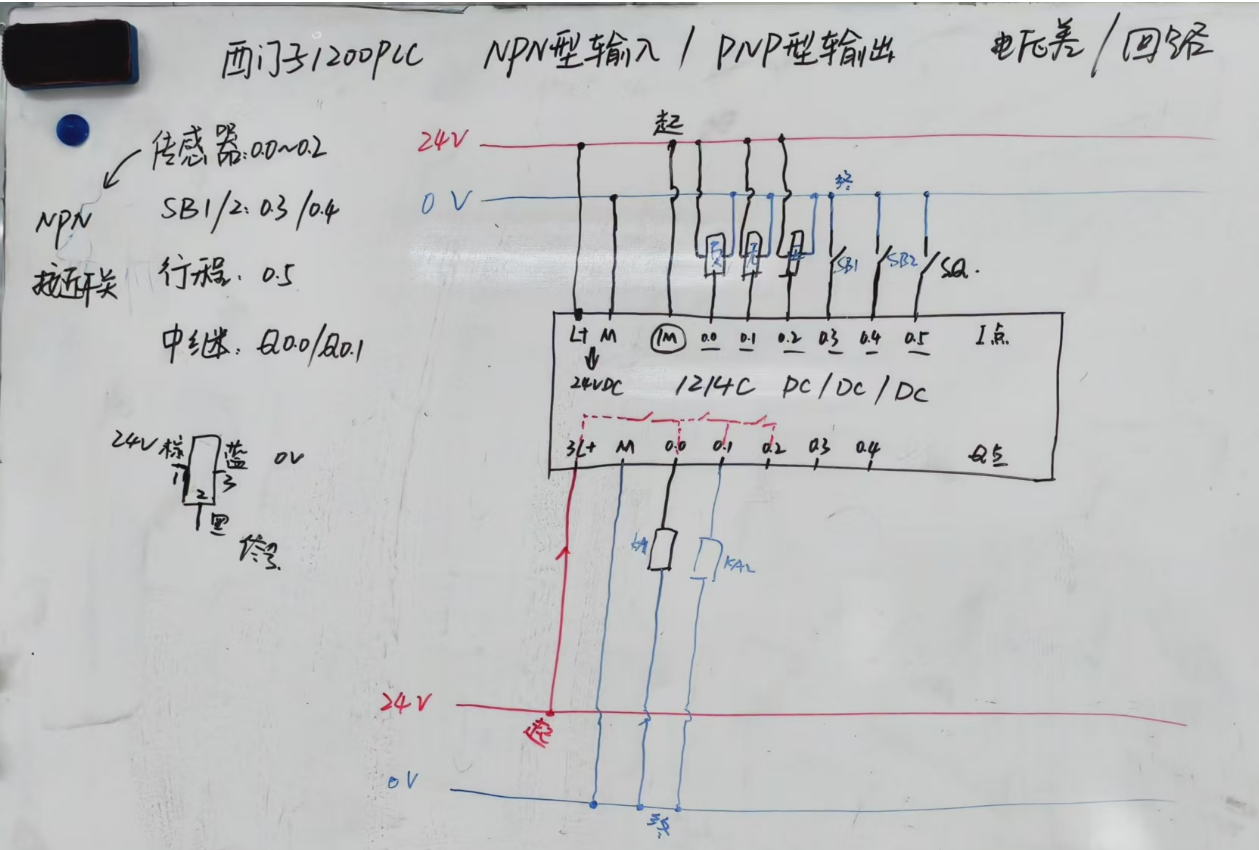 西门子1200PLC NPN型输入 / PNP型输出 电压差 / 回路
传感器:0.0~0.2
SB1/2: 0.3/0.4
NPN
接近开关
行程: 0.5
中继: Q0.0/Q0.1
24V 棕 蓝 0V
1 2 3
黑
信号
24V 起
0V 终
SB1 SB2 SQ.
L+ M 1M 0.0 0.1 0.2 0.3 0.4 0.5 I点.
24VDC 1214C DC/DC/DC
3L+ M 0.0 0.1 0.2 0.3 0.4 Q点
KA2
24V
起
0V
终